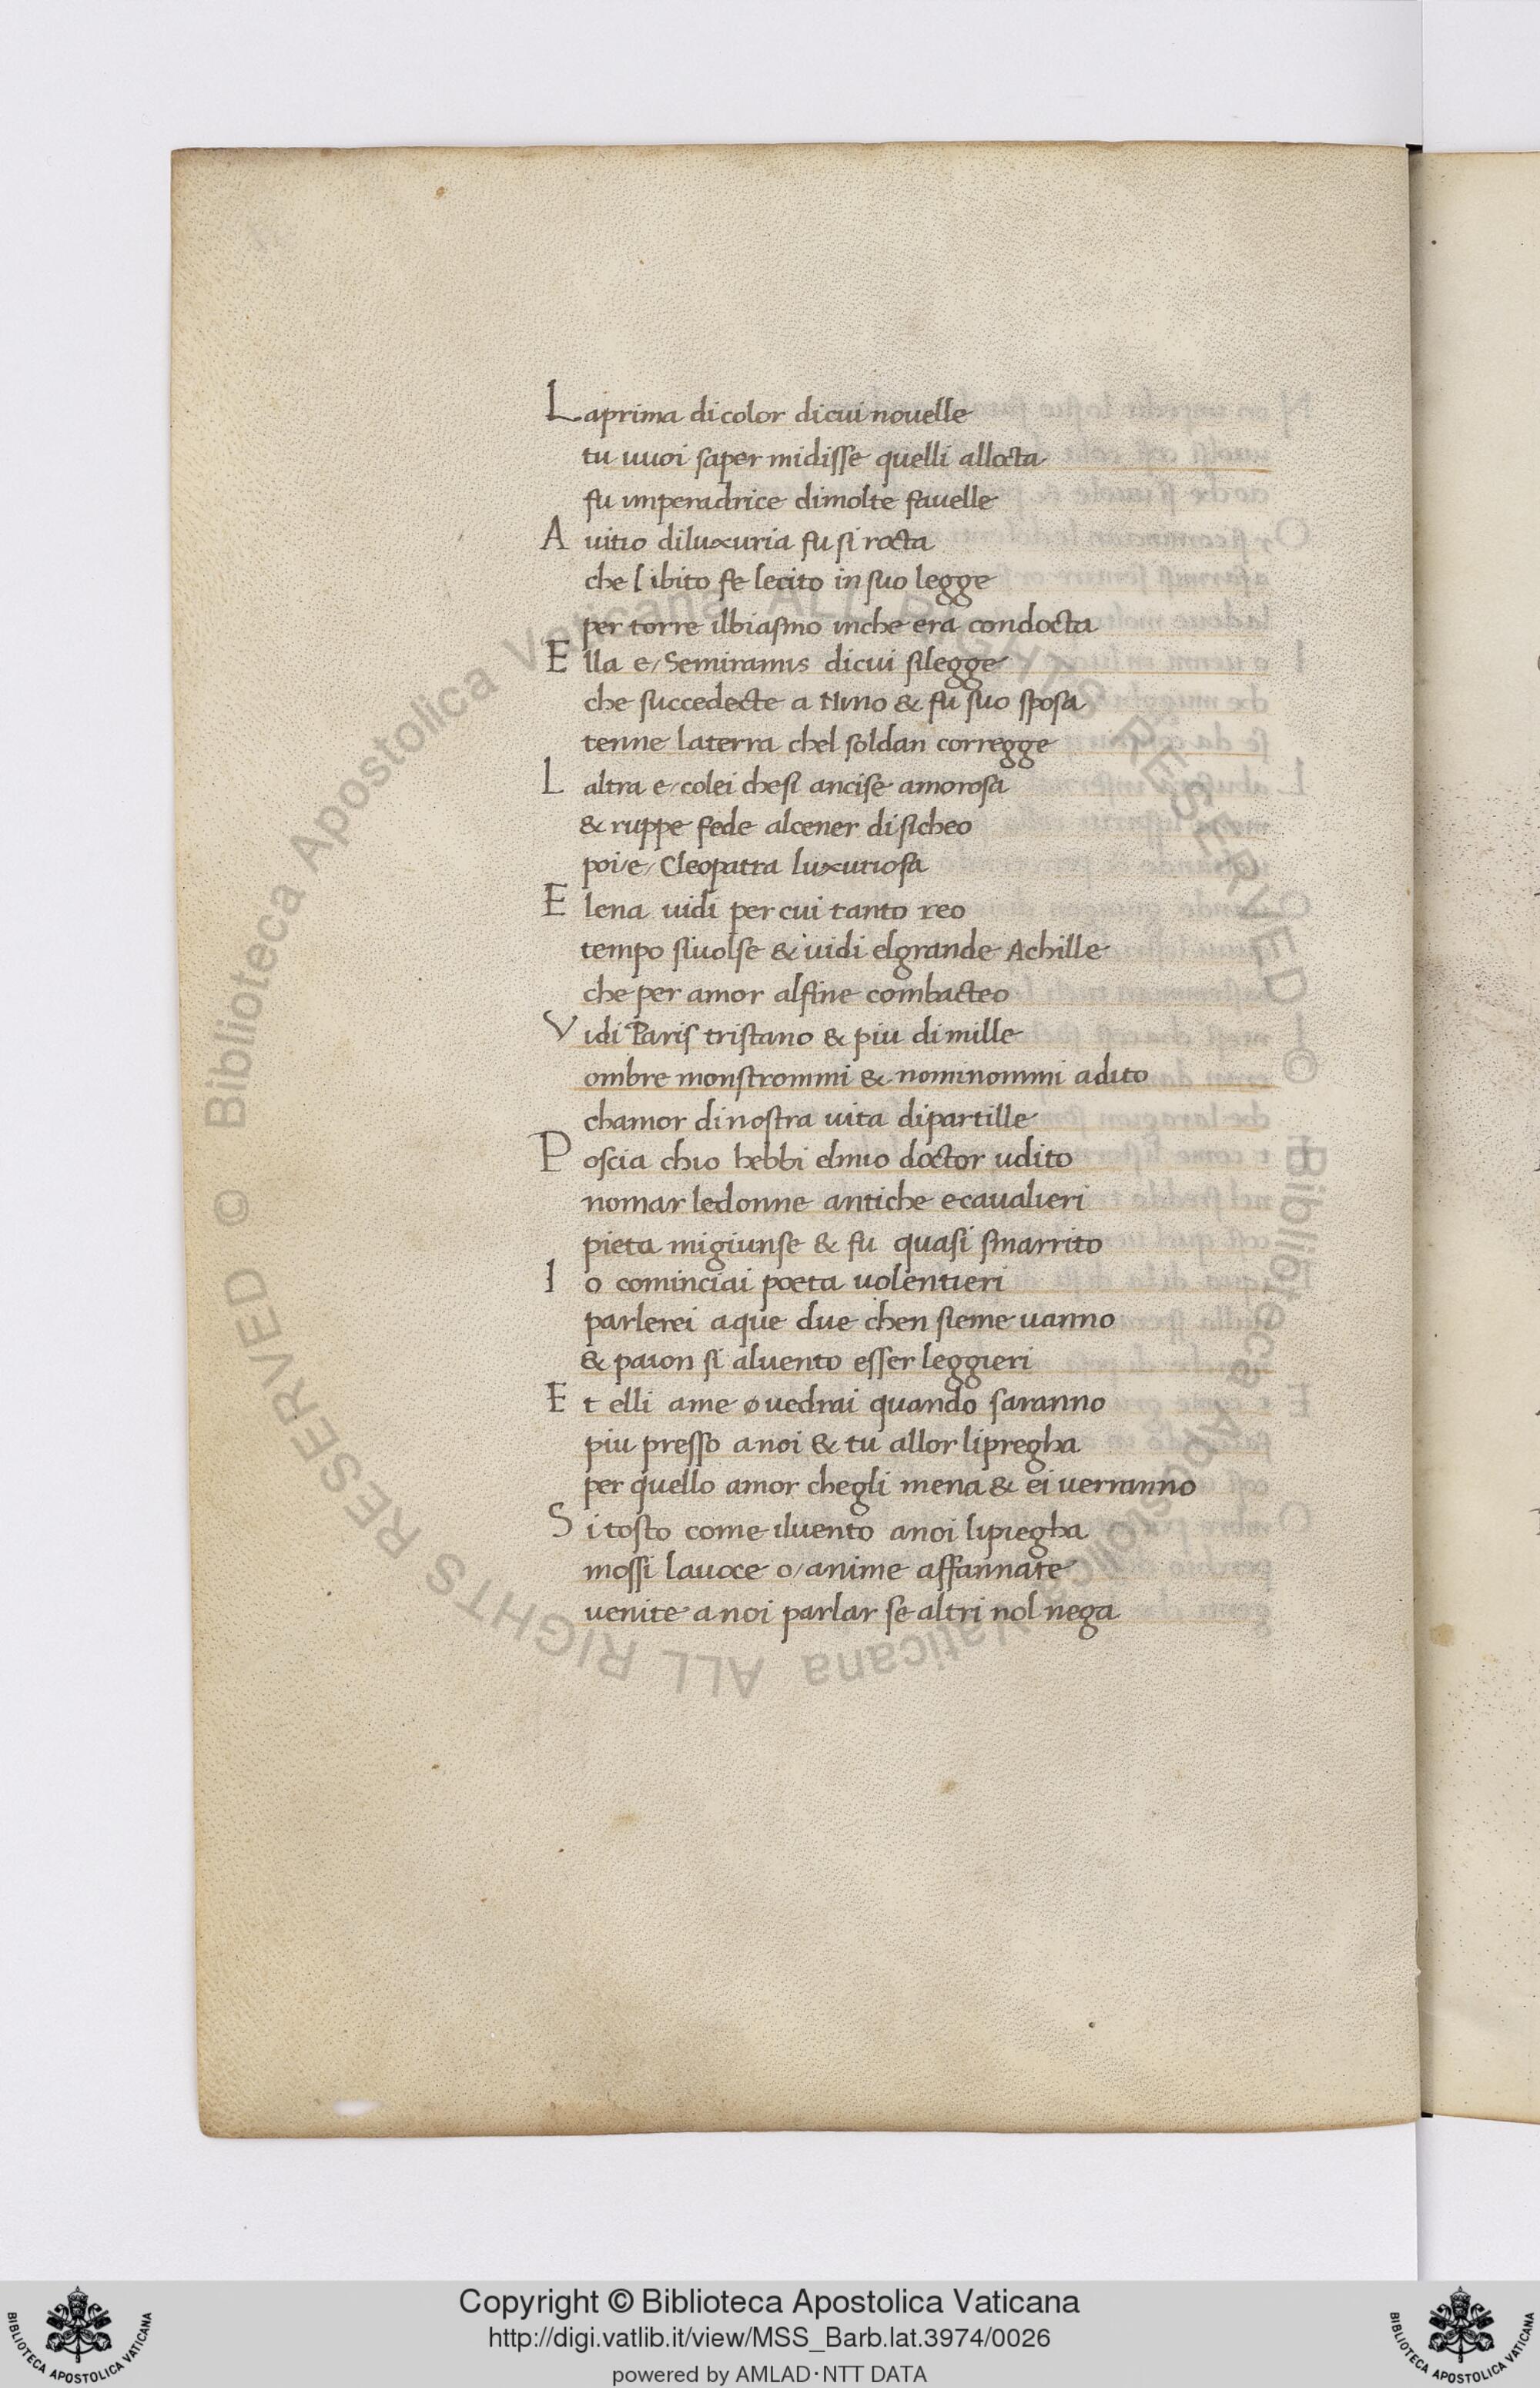 Laprima dicolor dicui nouelle
tu uuoi saper midisse quelli allocta
fu imperadrice dimolte fauelle
A uitio diluxuria fu si rocta
che libito fe lecito in suo legge
per torre ilbiasmo inche era condocta
Ella e/ Semiramis dicui silegge
che succedecte a Nino & fu suo sposa
tenne laterra chel soldan corregge
Laltra e/ colei chesi ancise amorosa
& ruppe fede alcener disicheo
poi/e/ Cleopatra luxuriosa
Elena uidi per cui tanto reo
tempo siuolse & uidi elgrande Achille
che per amor alfine combacteo
Vidi Paris tristano & piu dimille
ombre monstrommi & nominommi adito
chamor dinostra uita dipartille
Poscia chio hebbi elmio doctor udito
nomar ledonne antiche ecaualieri
pieta migiunse & fu quasi smarrito
Io cominciai poeta uolentieri
parlerei aque due chen sieme uanno
& paion si aluento esser leggieri
Et elli ame ø uedrai quando saranno
piu presso anoi & tu allor lipregha
per quello amor chegli mena & ei uerranno
Si tosto come iluento anoi lipiegha
mossi lauoce o/ anime affannate
uenite anoi parlar se altri nol nega
Biblioteca Apostolica Vaticana ALL RIGHTS RESERVED ©
Biblioteca Apostolica Vaticana ALL RIGHTS RESERVED ©
Copyright © Biblioteca Apostolica Vaticana
http://digi.vatlib.it/view/MSS_Barb.lat.3974/0026
powered by AMLAD·NTT DATA
BIBLIOTECA APOSTOLICA VATICANA
BIBLIOTECA APOSTOLICA VATICANA